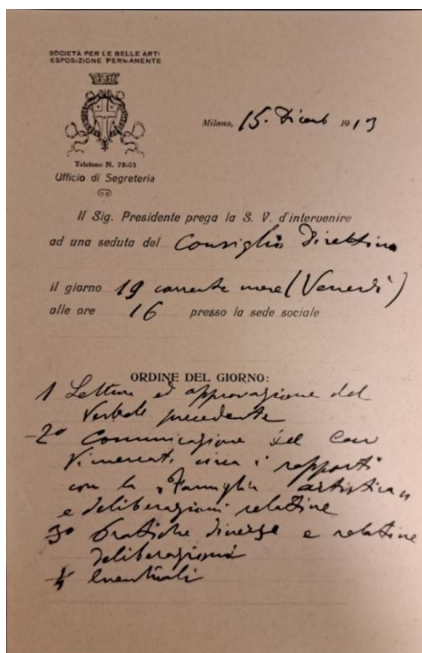 SOCIETÀ PER LE BELLE ARTI
ESPOSIZIONE PERMANENTE
Telefono N. 73-03
Ufficio di Segreteria
Milano, 15. Dicemb 1913
Il Sig. Presidente prega la S. V. d'intervenire
ad una seduta del Consiglio Direttivo
il giorno 19 corrente mese (Venerdì)
alle ore 16 presso la sede sociale
ORDINE DEL GIORNO:
1 Lettura ed approvazione del
Verbale precedente
2° Comunicazione del Cav
Vimercati, circa i rapporti
con la "Famiglia artistica"
e deliberazioni relative
3° Pratiche diverse e relative
deliberazioni
4 Eventuali